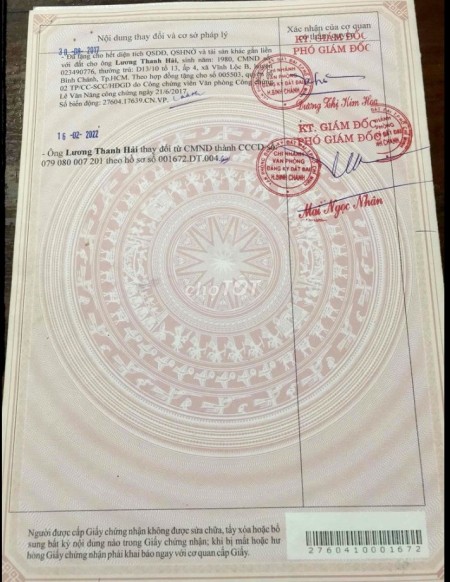 Nội dung thay đổi và cơ sở pháp lý
Xác nhận của cơ quan
30-08-2017
KT. GIÁM ĐỐC
PHÓ GIÁM ĐỐC
- Đã tặng cho hết diện tích QSDĐ, QSHNỞ và tài sản khác gắn liền
với đất cho ông Lương Thanh Hải, sinh năm: 1980, CMND số
023490776, thường trú: D13/10 tổ 13, ấp 4, xã Vĩnh Lộc B, huyện
Bình Chánh, Tp.HCM. Theo hợp đồng tặng cho số 005503, quyển số
02 TP/CC-SCC/HĐGD do Công chứng viên Văn phòng Công chứng
Lê Văn Năng công chứng ngày 21/6/2017.
Số biến động: 27604.17639.CN.VP.
CHI NHÁNH
VĂN PHÒNG
ĐĂNG KÝ ĐẤT ĐAI
H.BÌNH CHÁNH
Dương Thị Kim Hoa
16-02-2022
KT. GIÁM ĐỐC
PHÓ GIÁM ĐỐC
- Ông Lương Thanh Hải thay đổi từ CMND thành CCCD số
079 080 007 201 theo hồ sơ số 001672.DT.004
CHI NHÁNH
VĂN PHÒNG
ĐĂNG KÝ ĐẤT ĐAI
H.BÌNH CHÁNH
Mai Ngọc Nhân
choTOT
Người được cấp Giấy chứng nhận không được sửa chữa, tẩy xóa hoặc bổ
sung bất kỳ nội dung nào trong Giấy chứng nhận; khi bị mất hoặc hư
hỏng Giấy chứng nhận phải khai báo ngay với cơ quan cấp Giấy.
2760410001672